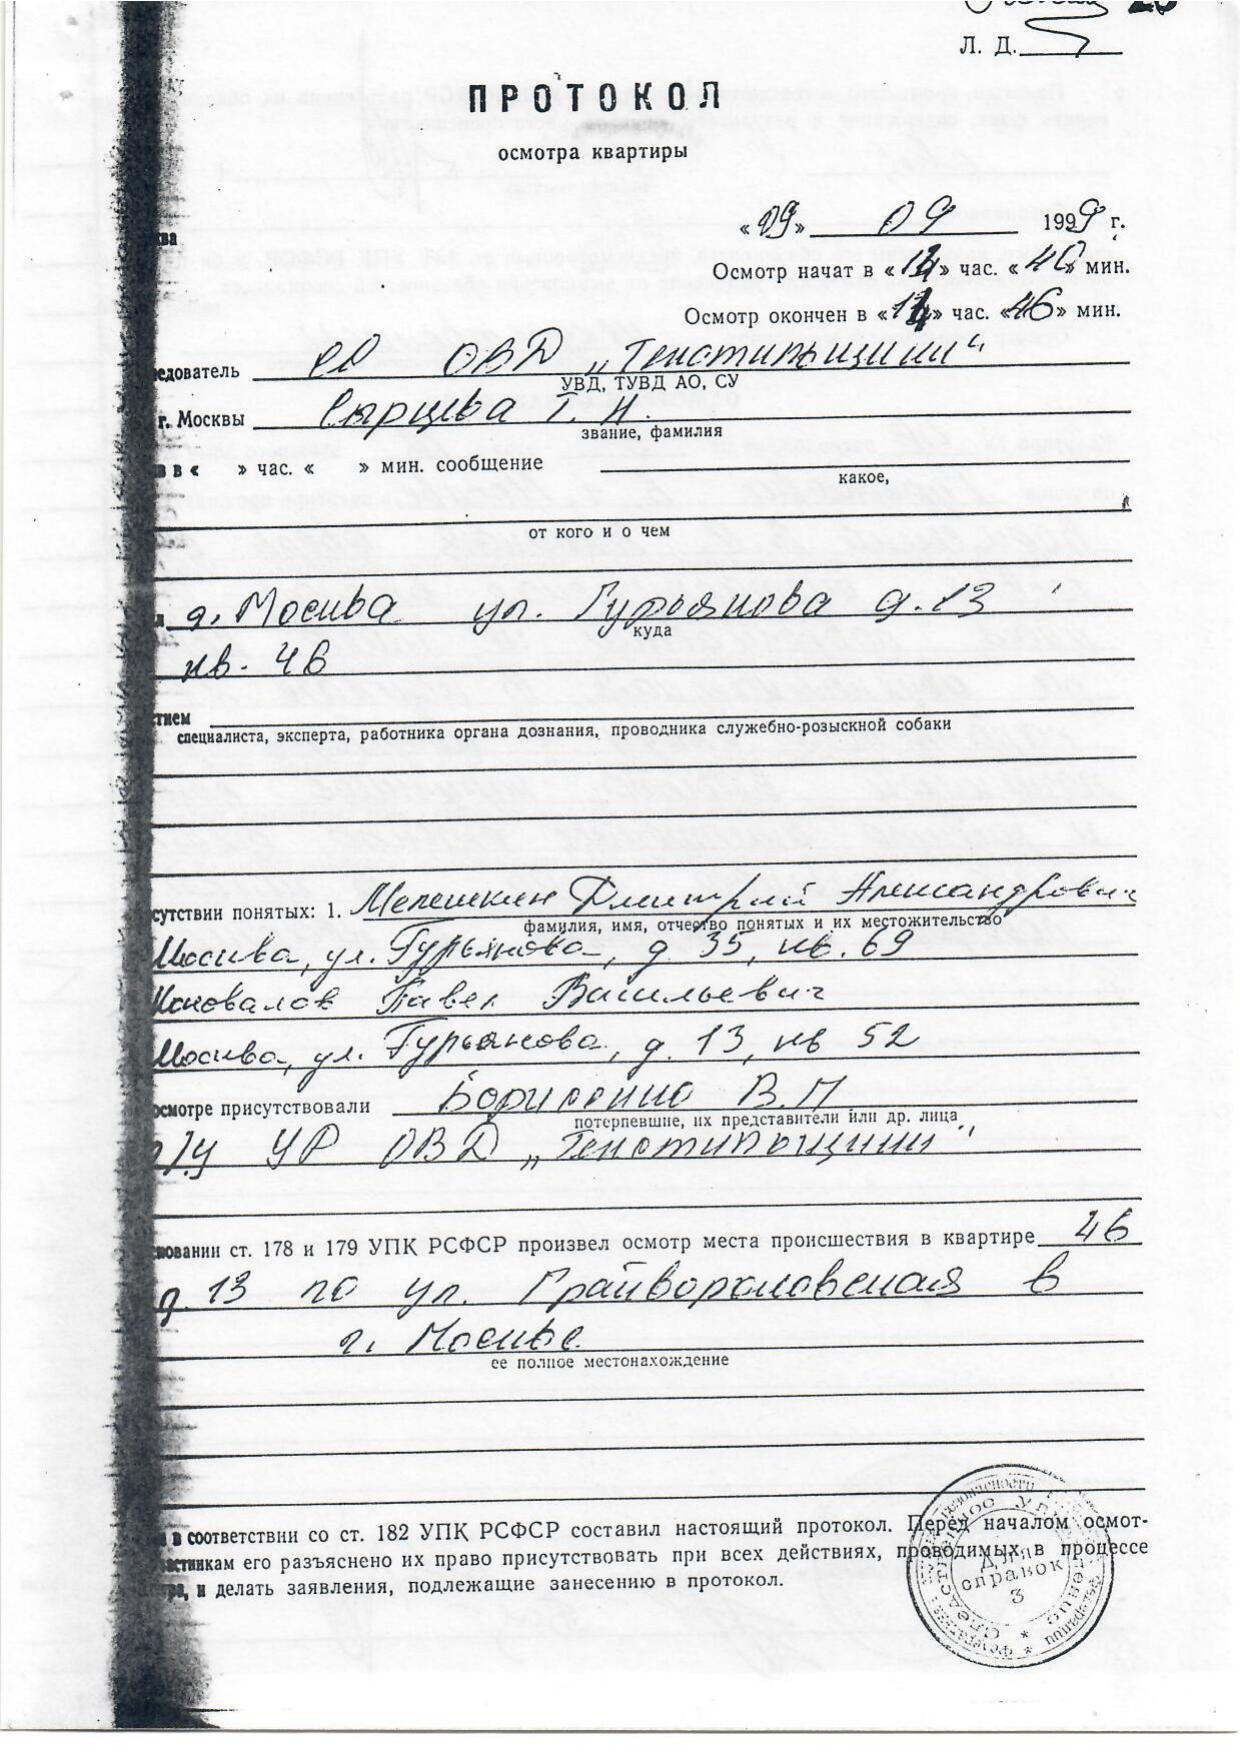 Л. Д.
ПРОТОКОЛ
осмотра квартиры
ква
«09» 09 1999 г.
Осмотр начат в « » час. «46» мин.
Осмотр окончен в « » час. «46» мин.
едователь ОВД „Текстильщики“
УВД, ТУВД АО, СУ
г. Москвы Сырцева Т. Н.
звание, фамилия
в в « » час. « » мин. сообщение
какое,
от кого и о чем
л г. Москва ул. Гурьянова д. 13
куда
кв. 46
стием
специалиста, эксперта, работника органа дознания, проводника служебно-розыскной собаки
сутствии понятых: 1. Мелешкин Дмитрий Александрович
фамилия, имя, отчество понятых и их местожительство
Москва, ул. Гурьянова, д. 35, кв. 69
Коновалов Павел Васильевич
Москва, ул. Гурьянова, д. 13, кв 52
осмотре присутствовали Борисенко В. П
потерпевшие, их представители или др. лица
о/у УР ОВД „Текстильщики“
новании ст. 178 и 179 УПК РСФСР произвел осмотр места происшествия в квартире 46
д. 13 по ул. Грайвороновская в
г. Москве
ее полное местонахождение
в соответствии со ст. 182 УПК РСФСР составил настоящий протокол. Перед началом осмот-
астникам его разъяснено их право присутствовать при всех действиях, проводимых в процессе
тра, и делать заявления, подлежащие занесению в протокол.
Для
справок
3